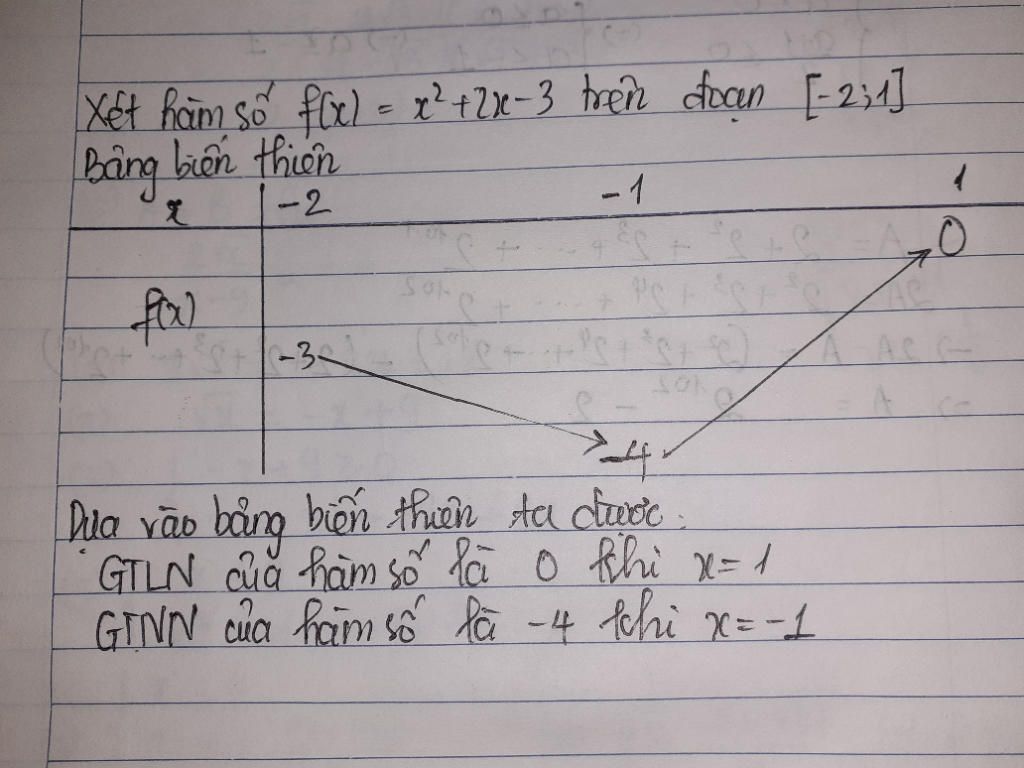 Xét hàm số f(x) = x²+2x-3 trên đoạn [-2;1]
Bảng biến thiên
x -2 -1 1
0
f(x)
-3
-4
Dựa vào bảng biến thiên ta được:
GTLN của hàm số là 0 khi x=1
GTNN của hàm số là -4 khi x=-1